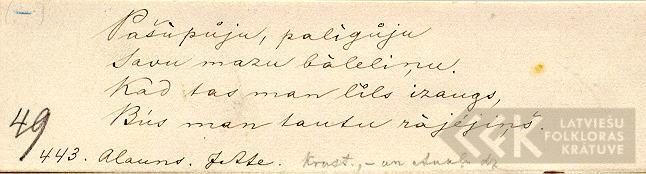 (–)
Pašùpůju, palìgůju
Savu mazu bàleliņu.
Kad tas man lìls izaugs,
Bùs man tautu ràjéjiņš.
49
443. Alauns. J. Ate. Krust., – un
LATVIEŠU
FOLKLORAS
KRĀTUVE